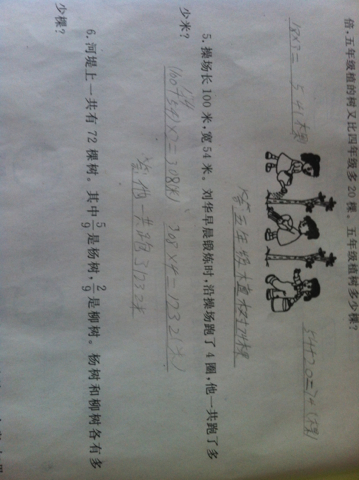 倍,五年级植的树又比四年级多20棵。五年级植树多少棵?
18×3=54(棵)
54+20=74(棵)
5. 操场长100米,宽54米。刘华早晨锻炼时,沿操场跑了4圈,他一共跑了多
少米?
(100+54)×2=308(米) 308×4=1232(米)
6. 河堤上一共有72棵树。其中5/9是杨树,2/9是柳树。杨树和柳树各有多
少棵?